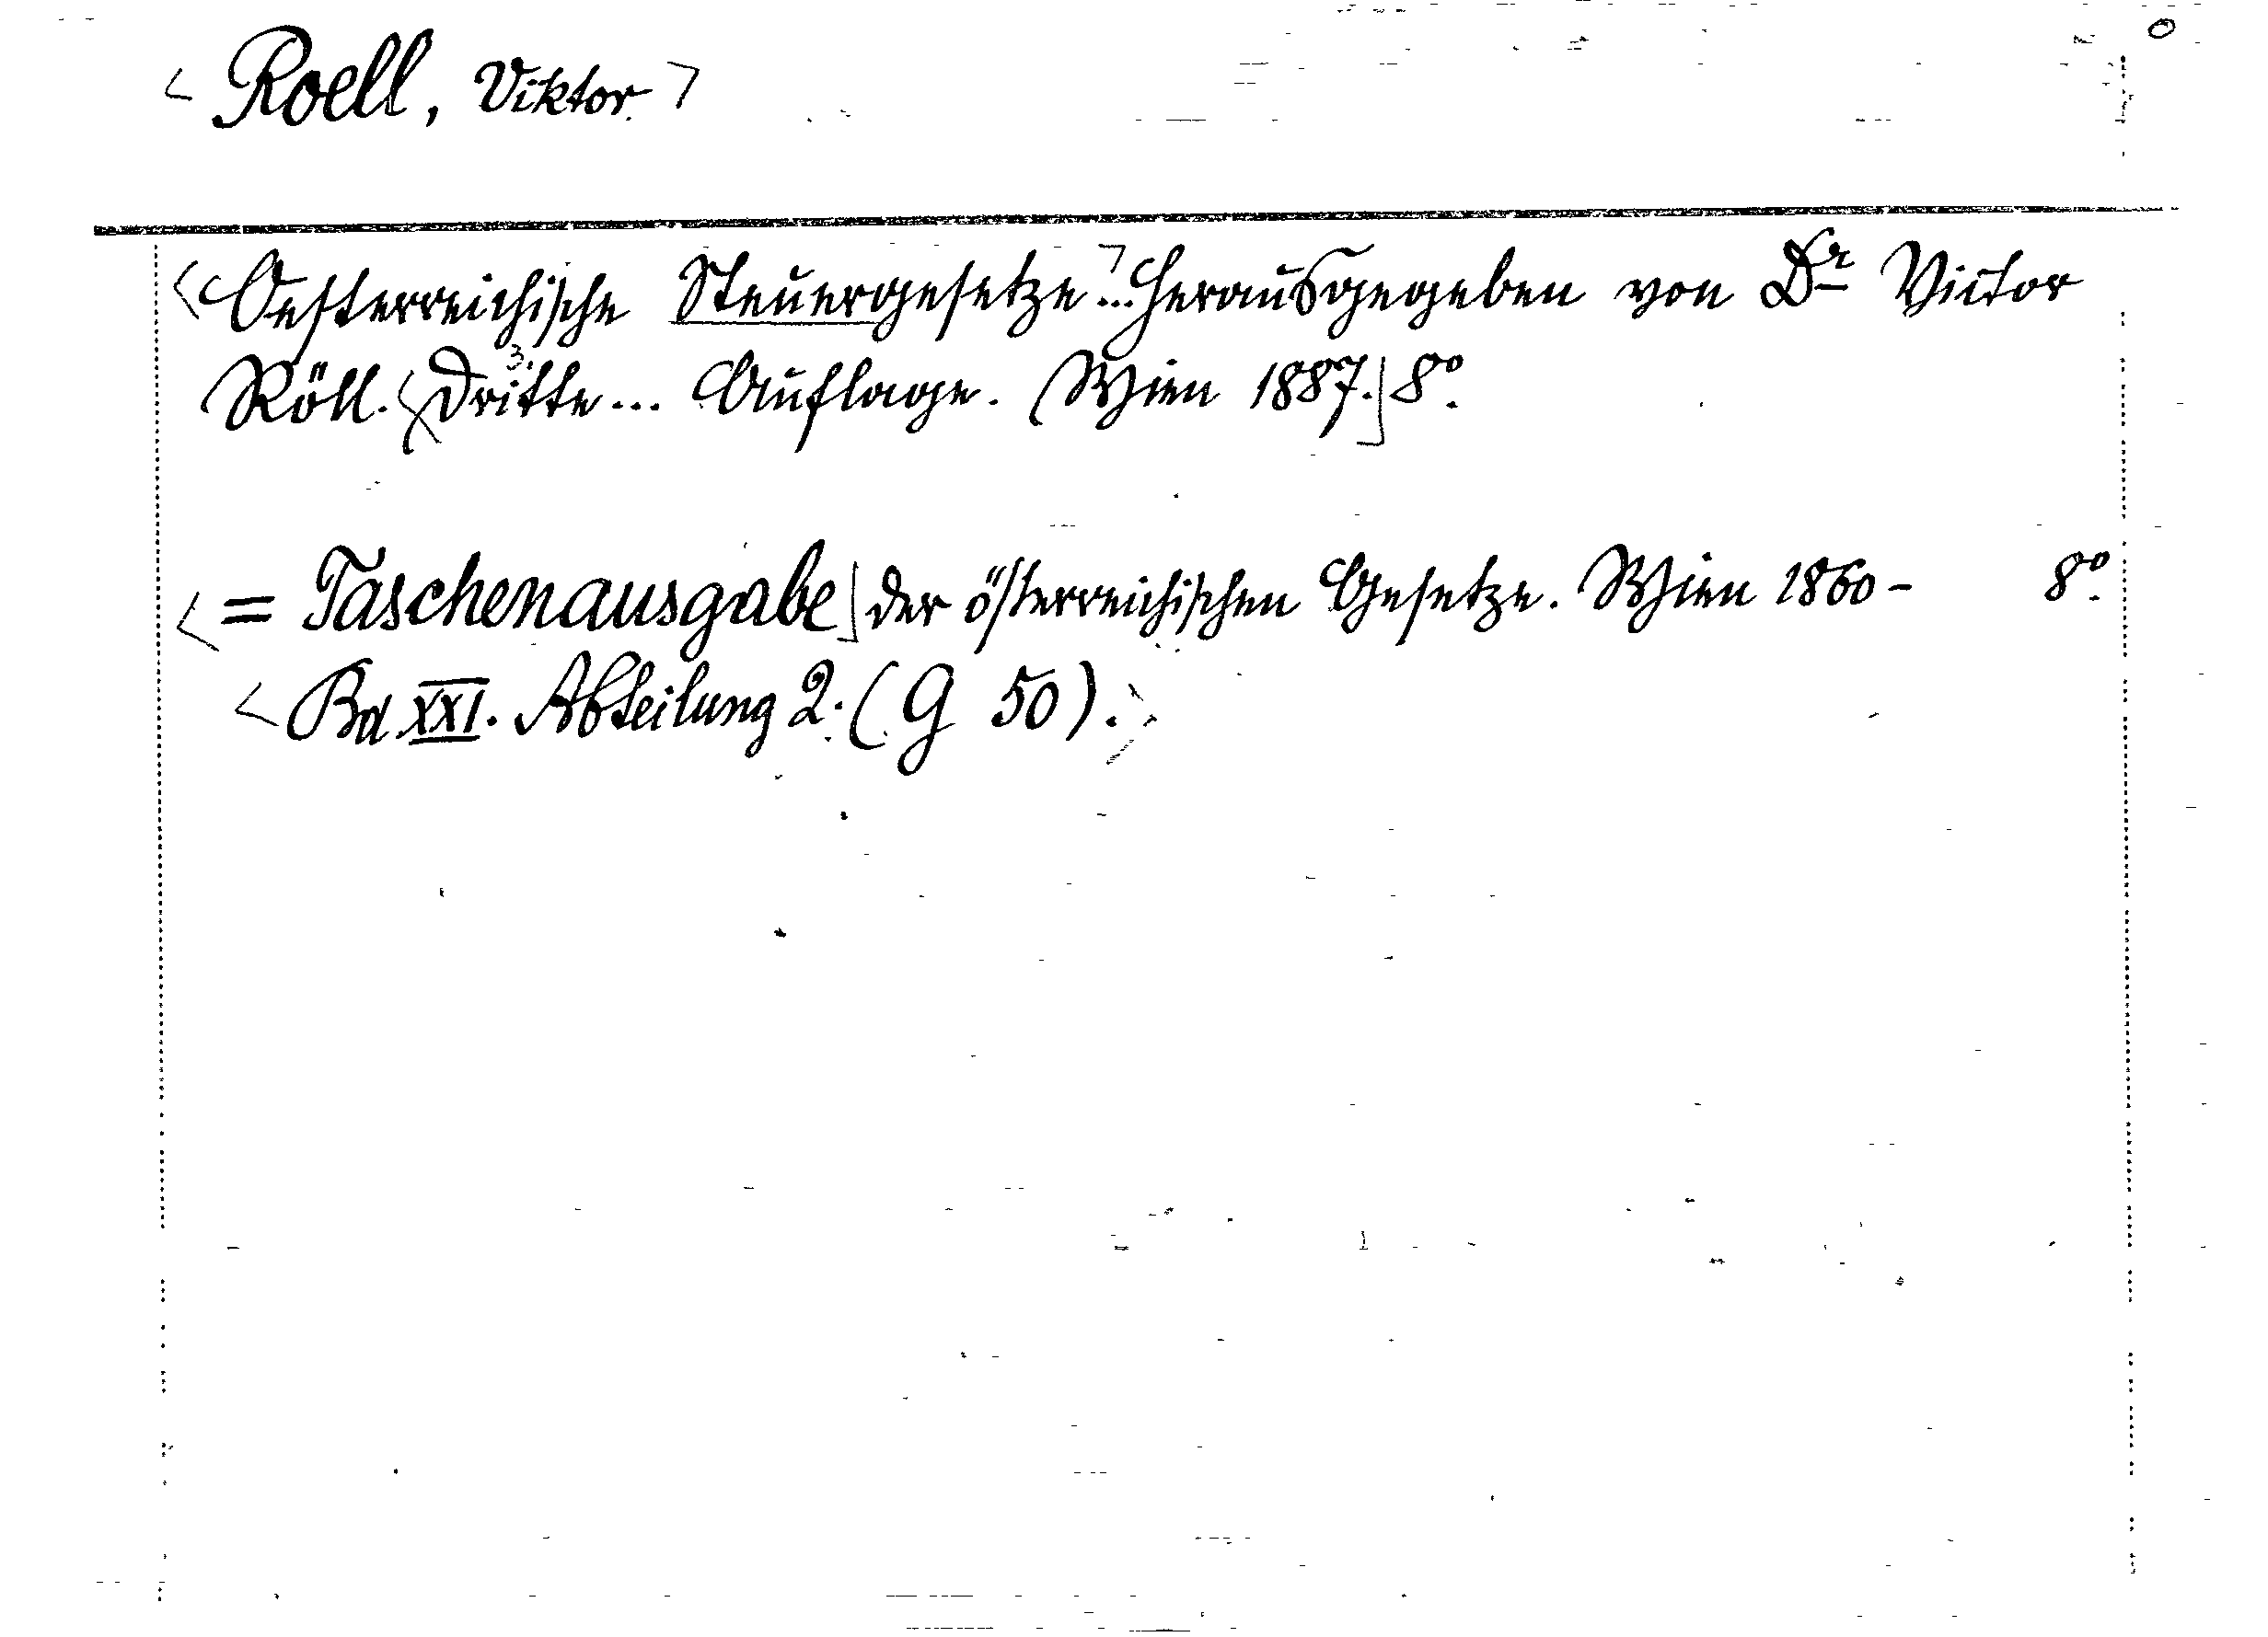 < Roell, Viktor. >
<Oesterreichische Steuergesetze ... Herausgegeben von Dr Victor
Röll. <Dritte ... Auflage. (Wien 1887.] 8°.
3.
<= Taschenausgabe] der österreichischen Gesetze. Wien 1860- 8°.
< Bd XXI. Abteilung 2. (G 50). >